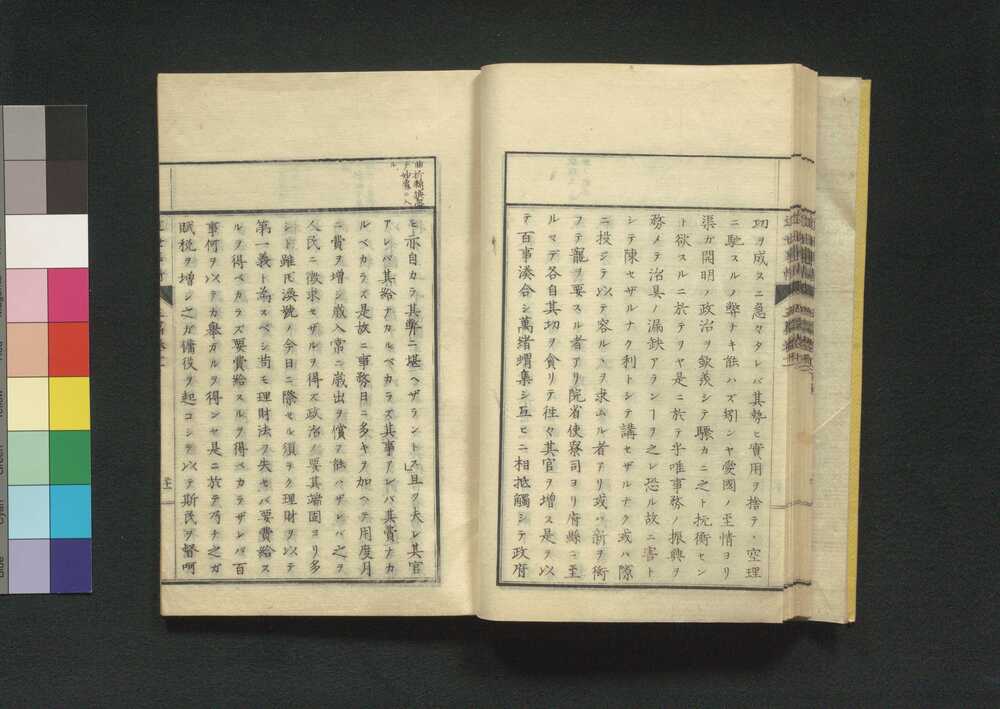 功ヲ成スニ急々タレバ其勢ヒ實用ヲ捨テ、空理
ニ馳スルノ弊ナキ能ハズ矧ンヤ愛國ノ至情ヨリ
渠ガ開明ノ政治ヲ欽羨シテ驟カニ之ト抗衡セン
ト欲スルニ於テリヤ是ニ於テ乎唯事務ノ振興ヲ
務メテ治具ノ漏缺アランヿヲ之レ恐ル故ニ害ト
シテ陳セザルナク利トシテ講セザルナク或ハ隙
ニ投シテ以テ容ルヽヲ求ムル者アリ或ハ新ヲ衒
フテ寵ヲ要スル者アリ院省使寮司ヨリ府縣ニ至
ルマデ各自其功ヲ貪リテ往々其官ヲ增ス是ヲ以
テ百事湊合シ萬緒蝟集シ互ヒニ相抵觸シテ政府
モ亦自カラ其弊ニ堪ヘザラントス且ツ夫レ其官
アレバ其給ナカルベカラズ其事アレバ其費ナカ
ルベカラズ是故ニ事務日ニ多キヲ加ヘテ用度月
ニ費ヲ增シ歳入常ニ歳出ヲ償フ能ハザレバ之ヲ
人民ニ徴求セザルヲ得ズ政治ノ要其端固ヨリ多
シト雖𪜈渙號ノ今日ニ際セル須ラク理財ヲ以テ
第一義ト為スベシ苟モ理財法ヲ失セバ要費給ス
ルヲ得ベカラズ要費給スルヲ得ベカラザレバ百
事何ヲ以テカ舉ガルヲ得ンヤ是ニ於テ乃チ之ガ
賦税ヲ增シ之ガ傭役ヲ起コシテ以テ斯民ヲ督呵